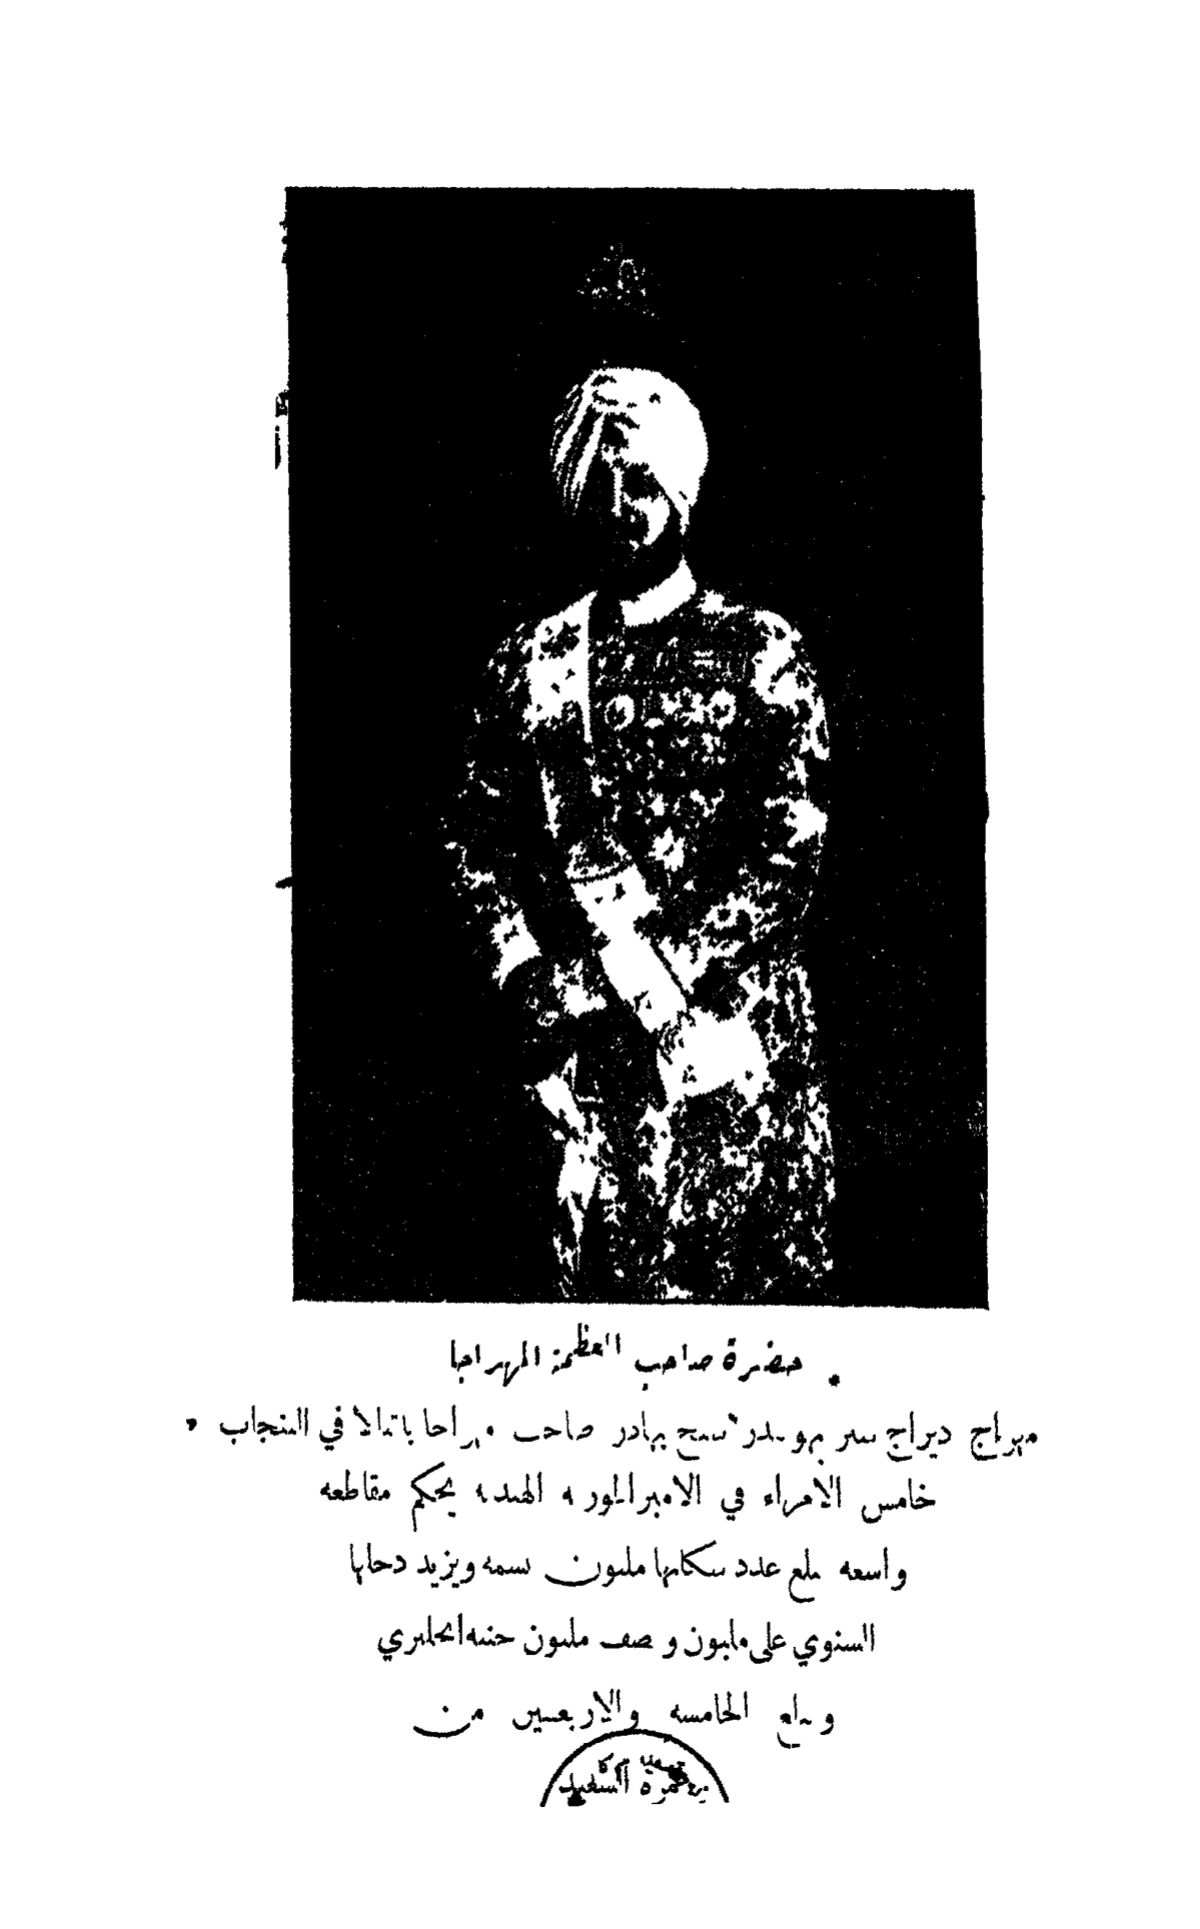 حضرة صاحب العظمة المهراجا
مهراج ديراج سر بهوبندر سنج بهادر صاحب مهراجا باتيالا في البنجاب
خامس الامراء في الامبراطورية الهندية يحكم مقاطعة
واسعة يبلغ عدد سكانها مليون نسمة ويزيد دخلها
السنوي على مليون ونصف مليون جنيه انجليزي
ويبلغ الخامسة والاربعين من
عمره السعيد